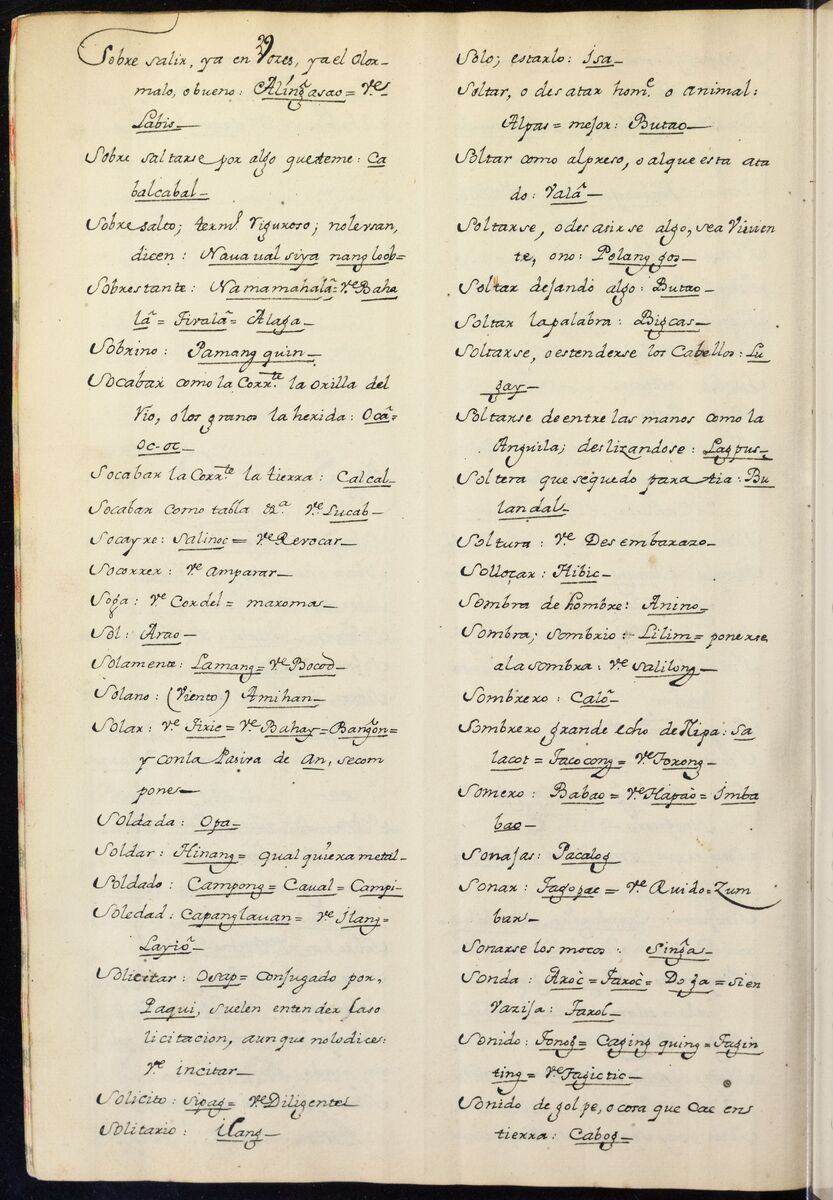 Sobre salir, ya en Vozes, ya el olor
malo, o bueno: Alíngãsao= Vᵉˢ
Labis—
Sobre saltarse por algo que teme: Ca
balcabal—
Sobresalto; termº. Viguroso; nolersan,
dicen: Naua ual siya nang loob=
Sobrestante: Namamahalã=Vᵉ Baha
lã= Tivalã= Alaga—
Sobrino: Pamang quin—
Socabar como la Corrᵗᵉ. la orilla del
Rio, o los granos la herida: Ocã=
Oc-oc—
Socabar la Corrᵗᵉ la tierra: Calcal—
Socabar como tabla &ª. Vᵉ Sucab—
Socayre: Salinoc= Vᵉ Revocar—
Socorrer: Vᵉ Amparar—
Soga: Vᵉ Cordel= maroma—
Sol: Arao—
Solamente: Lamang= Vᵉ Bocod—
Solano: (Viento) Amihan—
Solar: Vᵉ Tiric= Vᵉ Bahay= Bangõn=
y con la Pasiva de An, se com
pone—
Soldada: Opa—
Soldar: Hinang= qual quiera metal—
Soldado: Campong= Caval= Campi—
Soledad: Capanglauan= Vᵉ Ilang=
Layiõ—
Solicitar: Osap= conjugado por,
Paqui, suelen entender la so
licitacion, aun que nolo dices:
Vᵉ incitar—
Solicito: Sipag= Vᵉ Diligente
Solitario: Ilang—
Solo; estarlo: Isa—
Soltar, o des atar homᵉ. o animal:
Alpas= mejor: Butao—
Soltar como al preso, o al que esta ata
do: Valã—
Soltarse, o des asirse algo, sea Vivien
te, o no: Polang gos—
Soltar dejando algo: Butao—
Soltar la palabra: Bigcas—
Soltarse, o estenderse los Cabellos: Lu
gay—
Soltarse de entre las manos como la
Anguila; deslizandose: Lagpus—
Soltera que sequedo para tia: Bu
landal—
Soltura: Vᵉ Des embarazo—
Solloçar: Hibic—
Sombra de hombre: Anino—
Sombra; sombrio: Lilim= ponerse
a la sombra: Vᵉ Salilong—
Sombrero: Calõ—
Sombrero grande echo de Nipa: Sa
lacot= Tacocong= Vᵉ Torong—
Somero: Babao= Vᵉ Hapào= Imba
bao—
Sonajas: Pacalog
Sonar: Tagopac= Vᵉ Ruido= Zum
bar—
Sonarse los mocos: Singã—
Sonda: Aroc= Taroc= Doga= si en
Vazija: Tarol—
Sonido: Tonog= Caging quing= Tagin
ting= Vᵉ Tagictic—
Sonido de golpe, o cosa que cae en
tierra: Cabog—